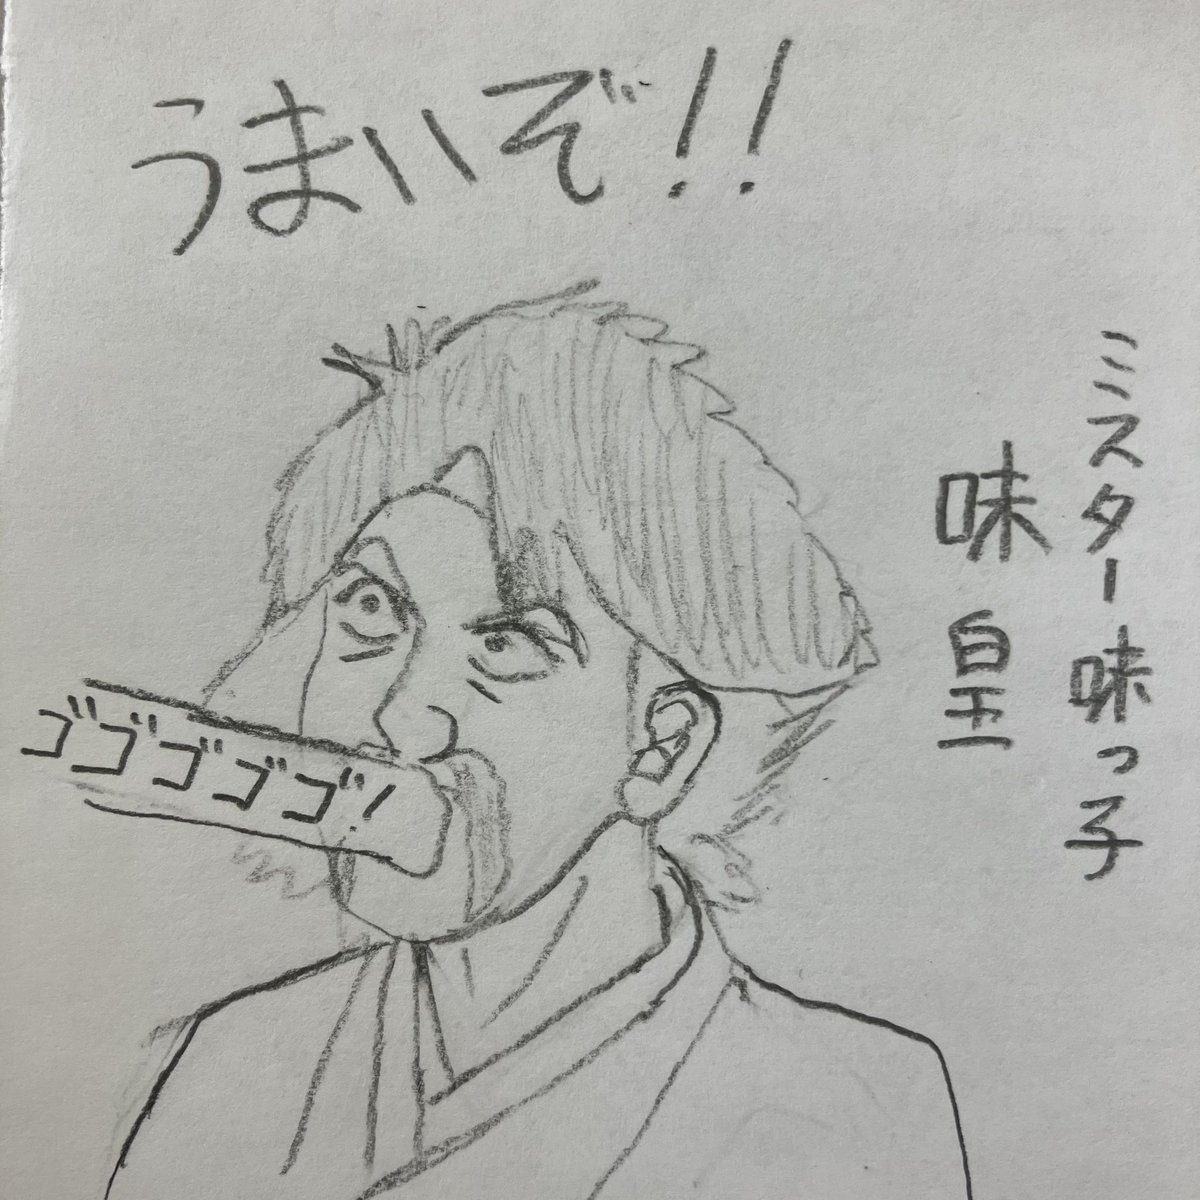 うまいぞ!!
ミスター味っ子
味皇
ゴゴゴゴゴ!